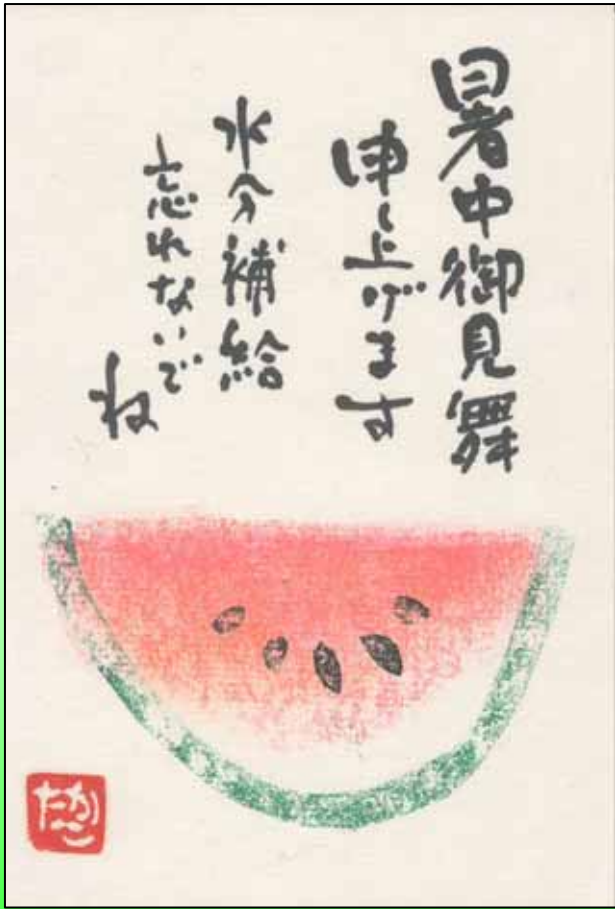 暑中御見舞
申し上げます
水分補給
忘れないで
ね
たかこ